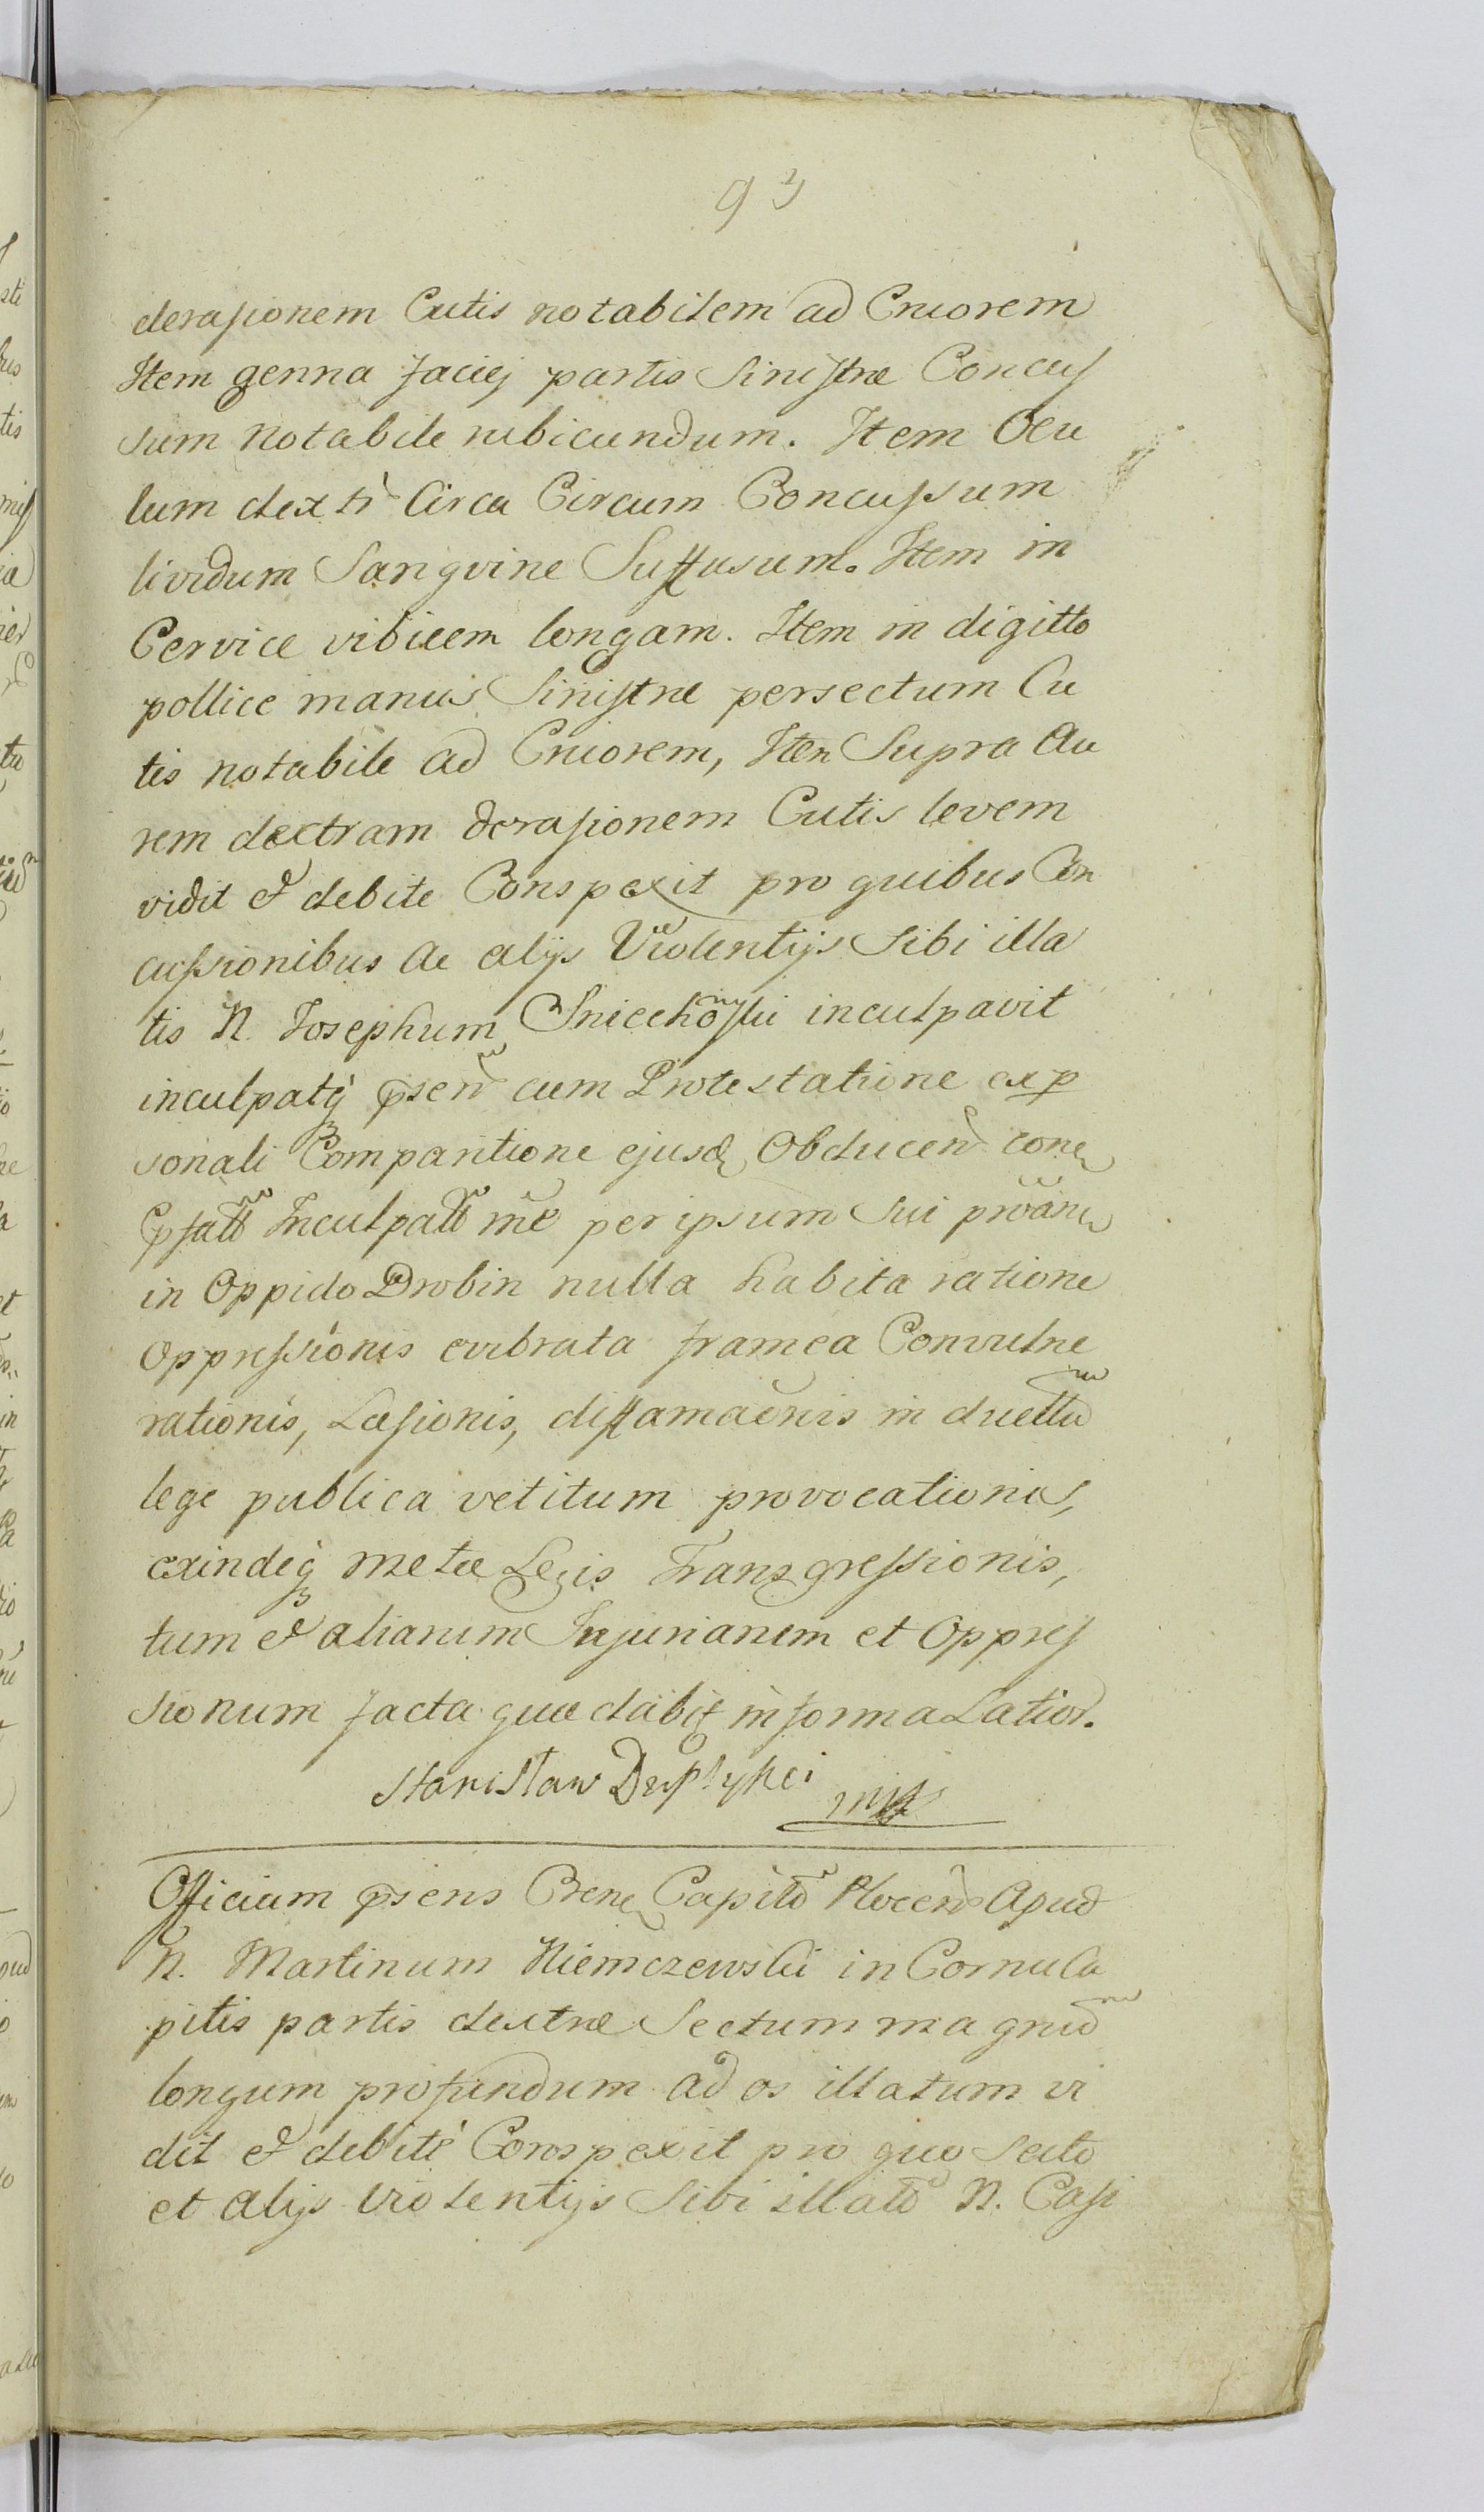 93
derasionem Cutis notabilem ad Cruorem
Item genna faciej partis Sinistræ Concus
sum notabile rubicundum. Item Ocu
lum dextr̃ Circa Circum Concussum
lividum Sangvine Suffusum. Item in
Cervice vibicem longam. Item in digitto
pollice manus Sinistræ persectum Cu
tis notabile ad Cruorem, Item Supra Au
rem dextram derasionem Cutis levem
vidit & debite Conspexit pro quibus Con
cussionibus ac alijs Violentijs Sibi illa
tis N. Josephum Sniechowski inculpavit
inculpatq̃ p̃sen̄ cum Protestatione ex p
sonali Comparitione ejusd̃ Obducen̄ cone
p̃fatt̃ Inculpatt̃ me per ipsum Sui
in Oppido Drobin nulla habita ratione
Oppressionis evibrata framea Convulne
rationis, Læsionis, diffamaõnis in duellũ
lege publica vetitum provocationis,
exindeq̃ metæ Legis Transgressionis,
tum & aliarum Injuriarum et Oppres
sionum facta quæ dabit̃ in forma Latior.
Stanisław
Officium p̃sens Crene Capitõ Plocen̄ Apud
N. Martinum Niemczewski in Cornu Ca
pitis partis dextræ Sectum magnũ
longum profundum ad os illatum vi
dit & debitè Conspexit pro quo Secto
et alijs Violentijs Sibi illatõ N. Casi